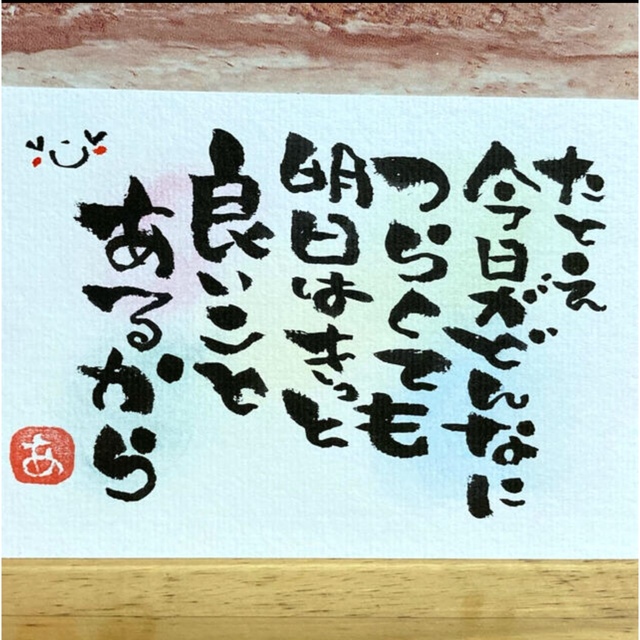 たとえ
今日がどんなに
つらくても
明日はきっと
良いこと
あるから
あ